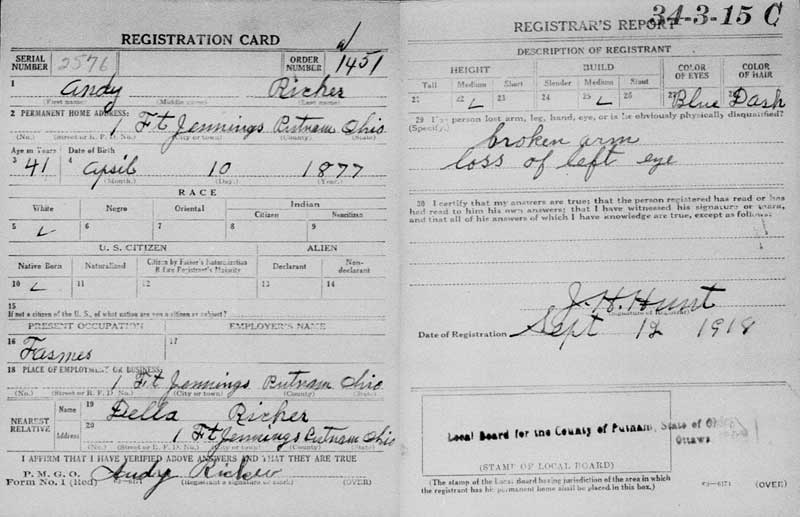 REGISTRATION CARD
SERIAL NUMBER 2576 ORDER NUMBER 1451
1 Andy Richer
(First name) (Middle name) (Last name)
2 PERMANENT HOME ADDRESS:
1 Ft Jennings Putnam Ohio
(No.) (Street or R. F. D. No.) (City or town) (County) (State)
Age in Years Date of Birth
3 41 4 April 10 1877
(Month.) (Day.) (Year.)
RACE
White Negro Oriental Indian
Citizen Noncitizen
5 6 7 8 9
U. S. CITIZEN ALIEN
Native Born Naturalized Citizen by Father's Naturalization Before Registrant's Majority Declarant Non-declarant
10 11 12 13 14
15
If not a citizen of the U. S., of what nation are you a citizen or subject?
PRESENT OCCUPATION EMPLOYER'S NAME
16 Farmer 17
18 PLACE OF EMPLOYMENT OR BUSINESS:
1 Ft Jennings Putnam Ohio
(No.) (Street or R. F. D. No.) (City or town) (County) (State)
NEAREST RELATIVE
Name 19 Della Richer
Address 20 1 Ft Jennings Putnam Ohio
(No.) (Street or R. F. D. No.) (City or town) (County) (State)
I AFFIRM THAT I HAVE VERIFIED ABOVE ANSWERS AND THAT THEY ARE TRUE
P. M. G. O.
Form No. 1 (Red) Andy Richer
(Registrant's signature or mark) (OVER)
34-3-15 C
REGISTRAR'S REPORT
DESCRIPTION OF REGISTRANT
HEIGHT BUILD COLOR OF EYES COLOR OF HAIR
Tall Medium Short Slender Medium Stout
21 22 23 24 25 26 27 Blue Dark
29 Has person lost arm, leg, hand, eye, or is he obviously physically disqualified?
(Specify.) broken arm
loss of left eye
30 I certify that my answers are true; that the person registered has read or has
had read to him his own answers; that I have witnessed his signature or mark,
and that all of his answers of which I have knowledge are true, except as follows:
J. H. Hunt
(Signature of Registrar)
Date of Registration Sept 12 1918
Local Board for the County of Putnam, State of
Ottawa
(STAMP OF LOCAL BOARD)
(The stamp of the Local Board having jurisdiction of the area in which
the registrant has his permanent home shall be placed in this box.)
(OVER)